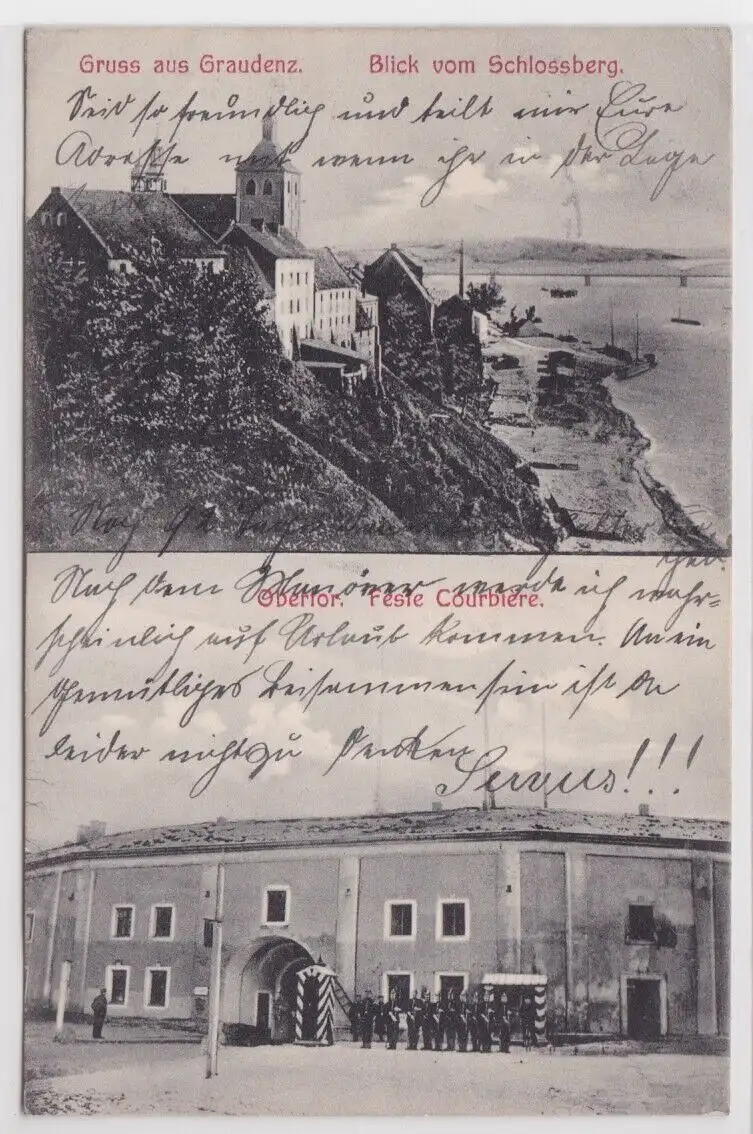 Gruss aus Graudenz. Blick vom Schlossberg.
Seid so freundlich und teilt mir Eure
Adresse mit wenn ihr in der Lage
Noch
Nach dem Manöver werde ich wahr=
Obertor. Feste Courbière.
scheinlich auf Urlaub kommen. An ein
gemütliches Beisammensein ist da
leider nicht zu denken
Servus!!!